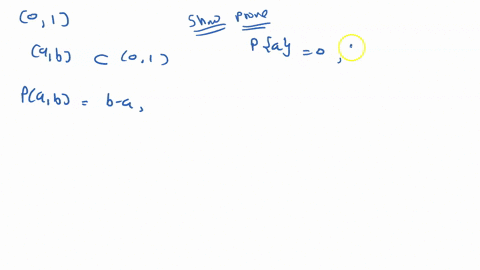 (0,1)
Show Prove
(a,b) ⊂ (0,1)
P{a} = 0,
P(a,b) = b-a,